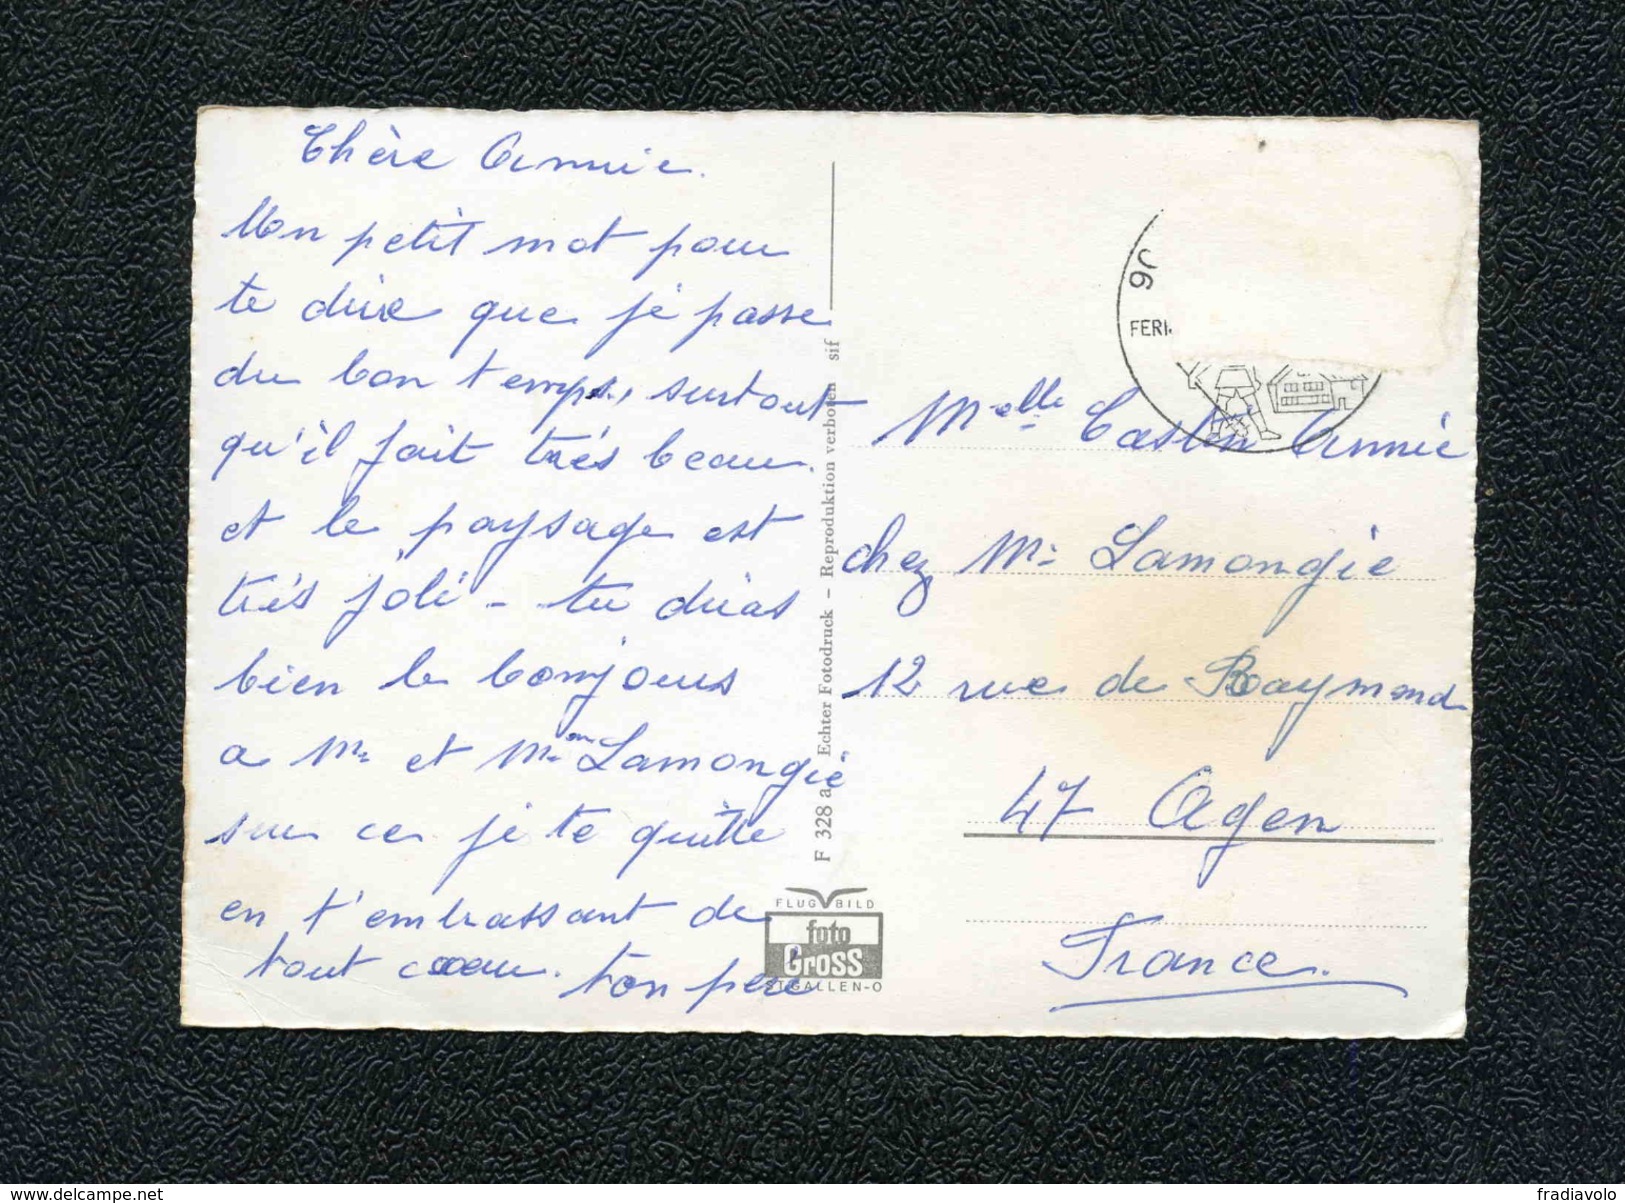 Chère Annie.
Un petit mot pour
te dire que je passe
du bon temps, surtout
qu'il fait trés beau.
et le paysage est
trés joli - tu diras
bien le bonjour
a Mr et Mme Lamongie
sur ce je te quitte
en t'embrassant de
tout coeur. ton père
F 328 a Echter Fotodruck – Reproduktion verboten sif
FLUG BILD
foto
GROSS
ST.GALLEN-O
90
FERI
Melle Castin Annie
chez Mr Lamongie
12 rue de Raymond
47 Agen
France.
www.delcampe.net
fradiavolo